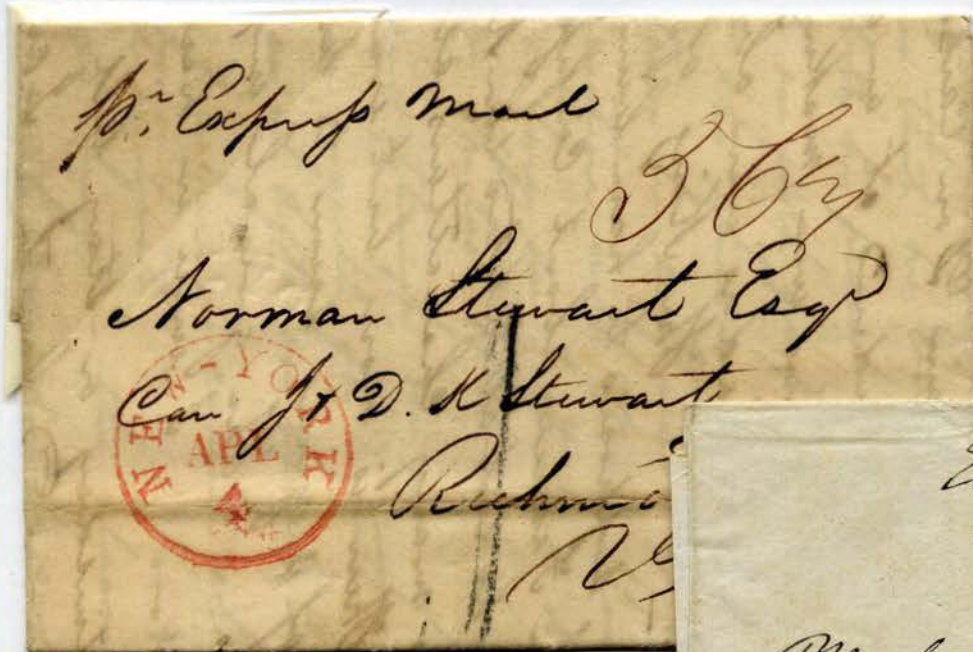 pr. Express Mail
Norman Stewart Esqr
Care J & D. K Stewart
Richmo
NEW-YORK
APL
4